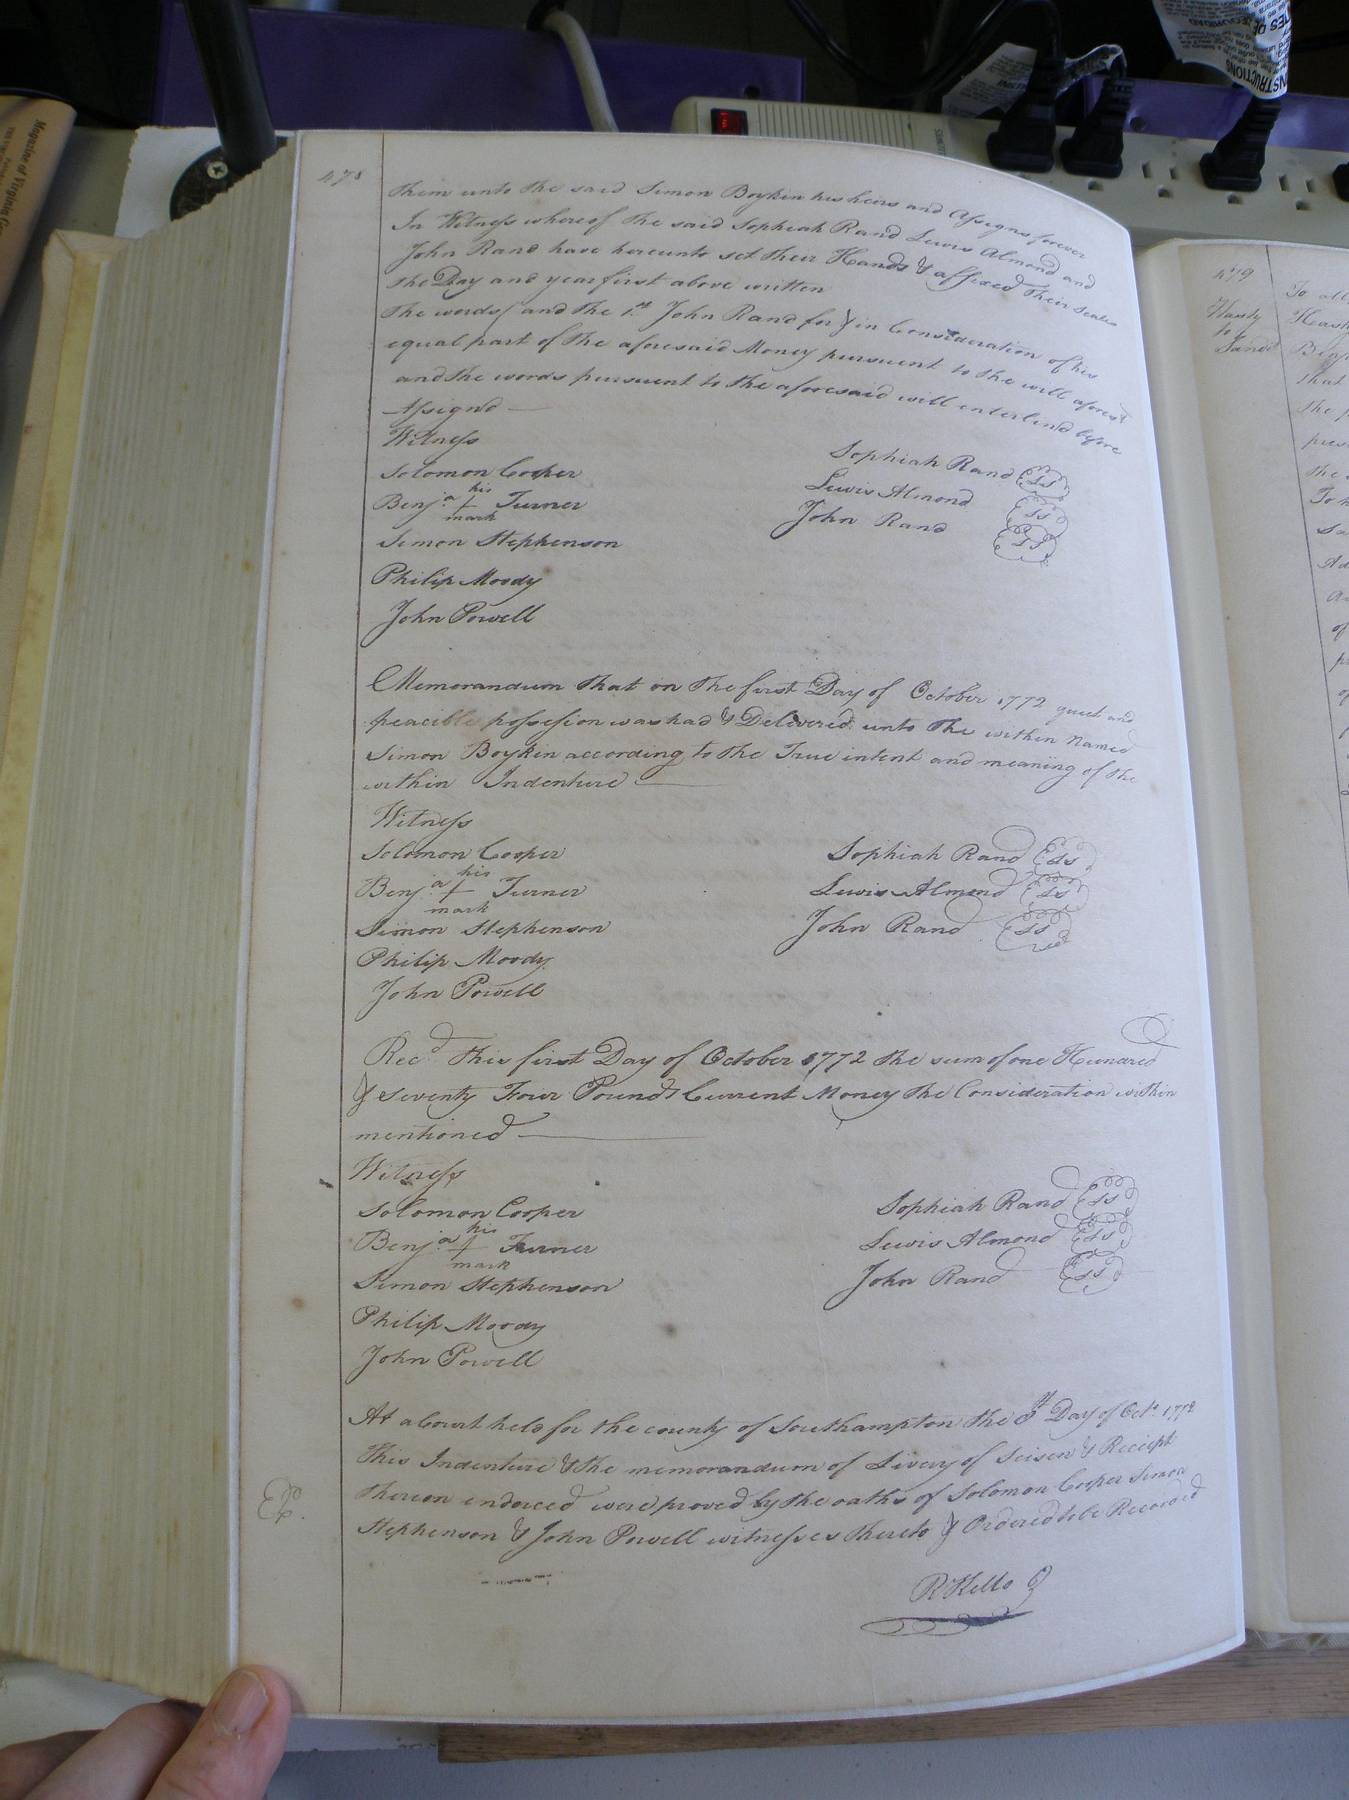 478
them unto the said Simon Boykin his heirs and Assigns forever
In Witness whereof the said Sophiah Rand Lewis Almond and
John Rand have hereunto set their Hands & affixed their Seals
the Day and year first above written
The words (and the John Rand for & in Consideration of his
equal part of the aforesaid Money pursuant to the will aforesd
and the words pursuent to the aforesaid will enterlind before
Assignd
Witness
Solomon Cooper
Sophiah Rand Ls
Benja his + mark Turner
Lewis Almond Ls
Simon Stephenson
John Rand Ls
Philip Moody
John Powell
Memorandum that on the first Day of October 1772 quiet and
peacible possession was had & Delivered unto the within Named
Simon Boykin according to the True intent and meaning of the
within Indenture
Witness
Solomon Cooper
Sophiah Rand Ls
Benja his + mark Turner
Lewis Almond Ls
Simon Stephenson
John Rand Ls
Philip Moody
John Powell
Recd This first Day of October 1772 the sum of one Hundred
& seventy Four Pounds Current Money the Consideration within
mentioned
Witness
Solomon Cooper
Sophiah Rand Ls
Benja his + mark Turner
Lewis Almond Ls
Simon Stephenson
John Rand Ls
Philip Moody
John Powell
At a Court held for the county of Southampton the Day of Octr 1772
This Indenture & the memorandum of Livery of Seisen & Reciept
thereon endorced were proved by the oaths of Solomon Cooper Simon
Stephenson & John Powell witnesses thereto & Ordered to be Recorded
Ex.
R Kello
479
to
To all
that
the
the
of
Magazine of Virginia
INSTRUCTIONS